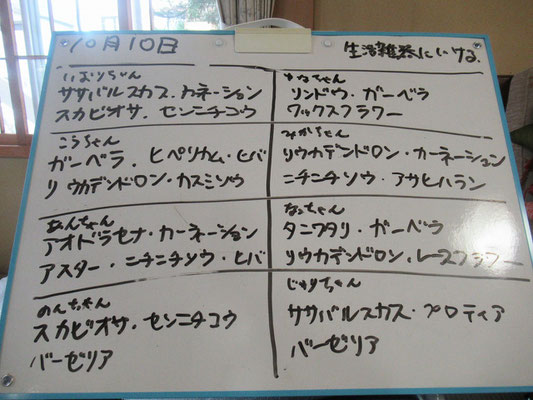 10月10日
生活雑器にいける.
いおりちゃん
ササバルスカス.カーネーション
スカビオサ.センニチコウ
ゆなちゃん
リンドウ・ガーベラ
ワックスフラワー
こうちゃん
ガーベラ.ヒペリカム・ヒバ
リウカデンドロン・カスミソウ
みかちゃん
リウカデンドロン・カーネーション
ニチニチソウ・アサヒハラン
あんちゃん
アオドラセナ・カーネーション
アスター・ニチニチソウ・ヒバ
なっちゃん
タニワタリ・ガーベラ
リウカデンドロン.レースフラワー
のんちゃん
スカビオサ.センニチコウ
バーゼリア
じゅりちゃん
ササバルスカス・プロティア
バーゼリア